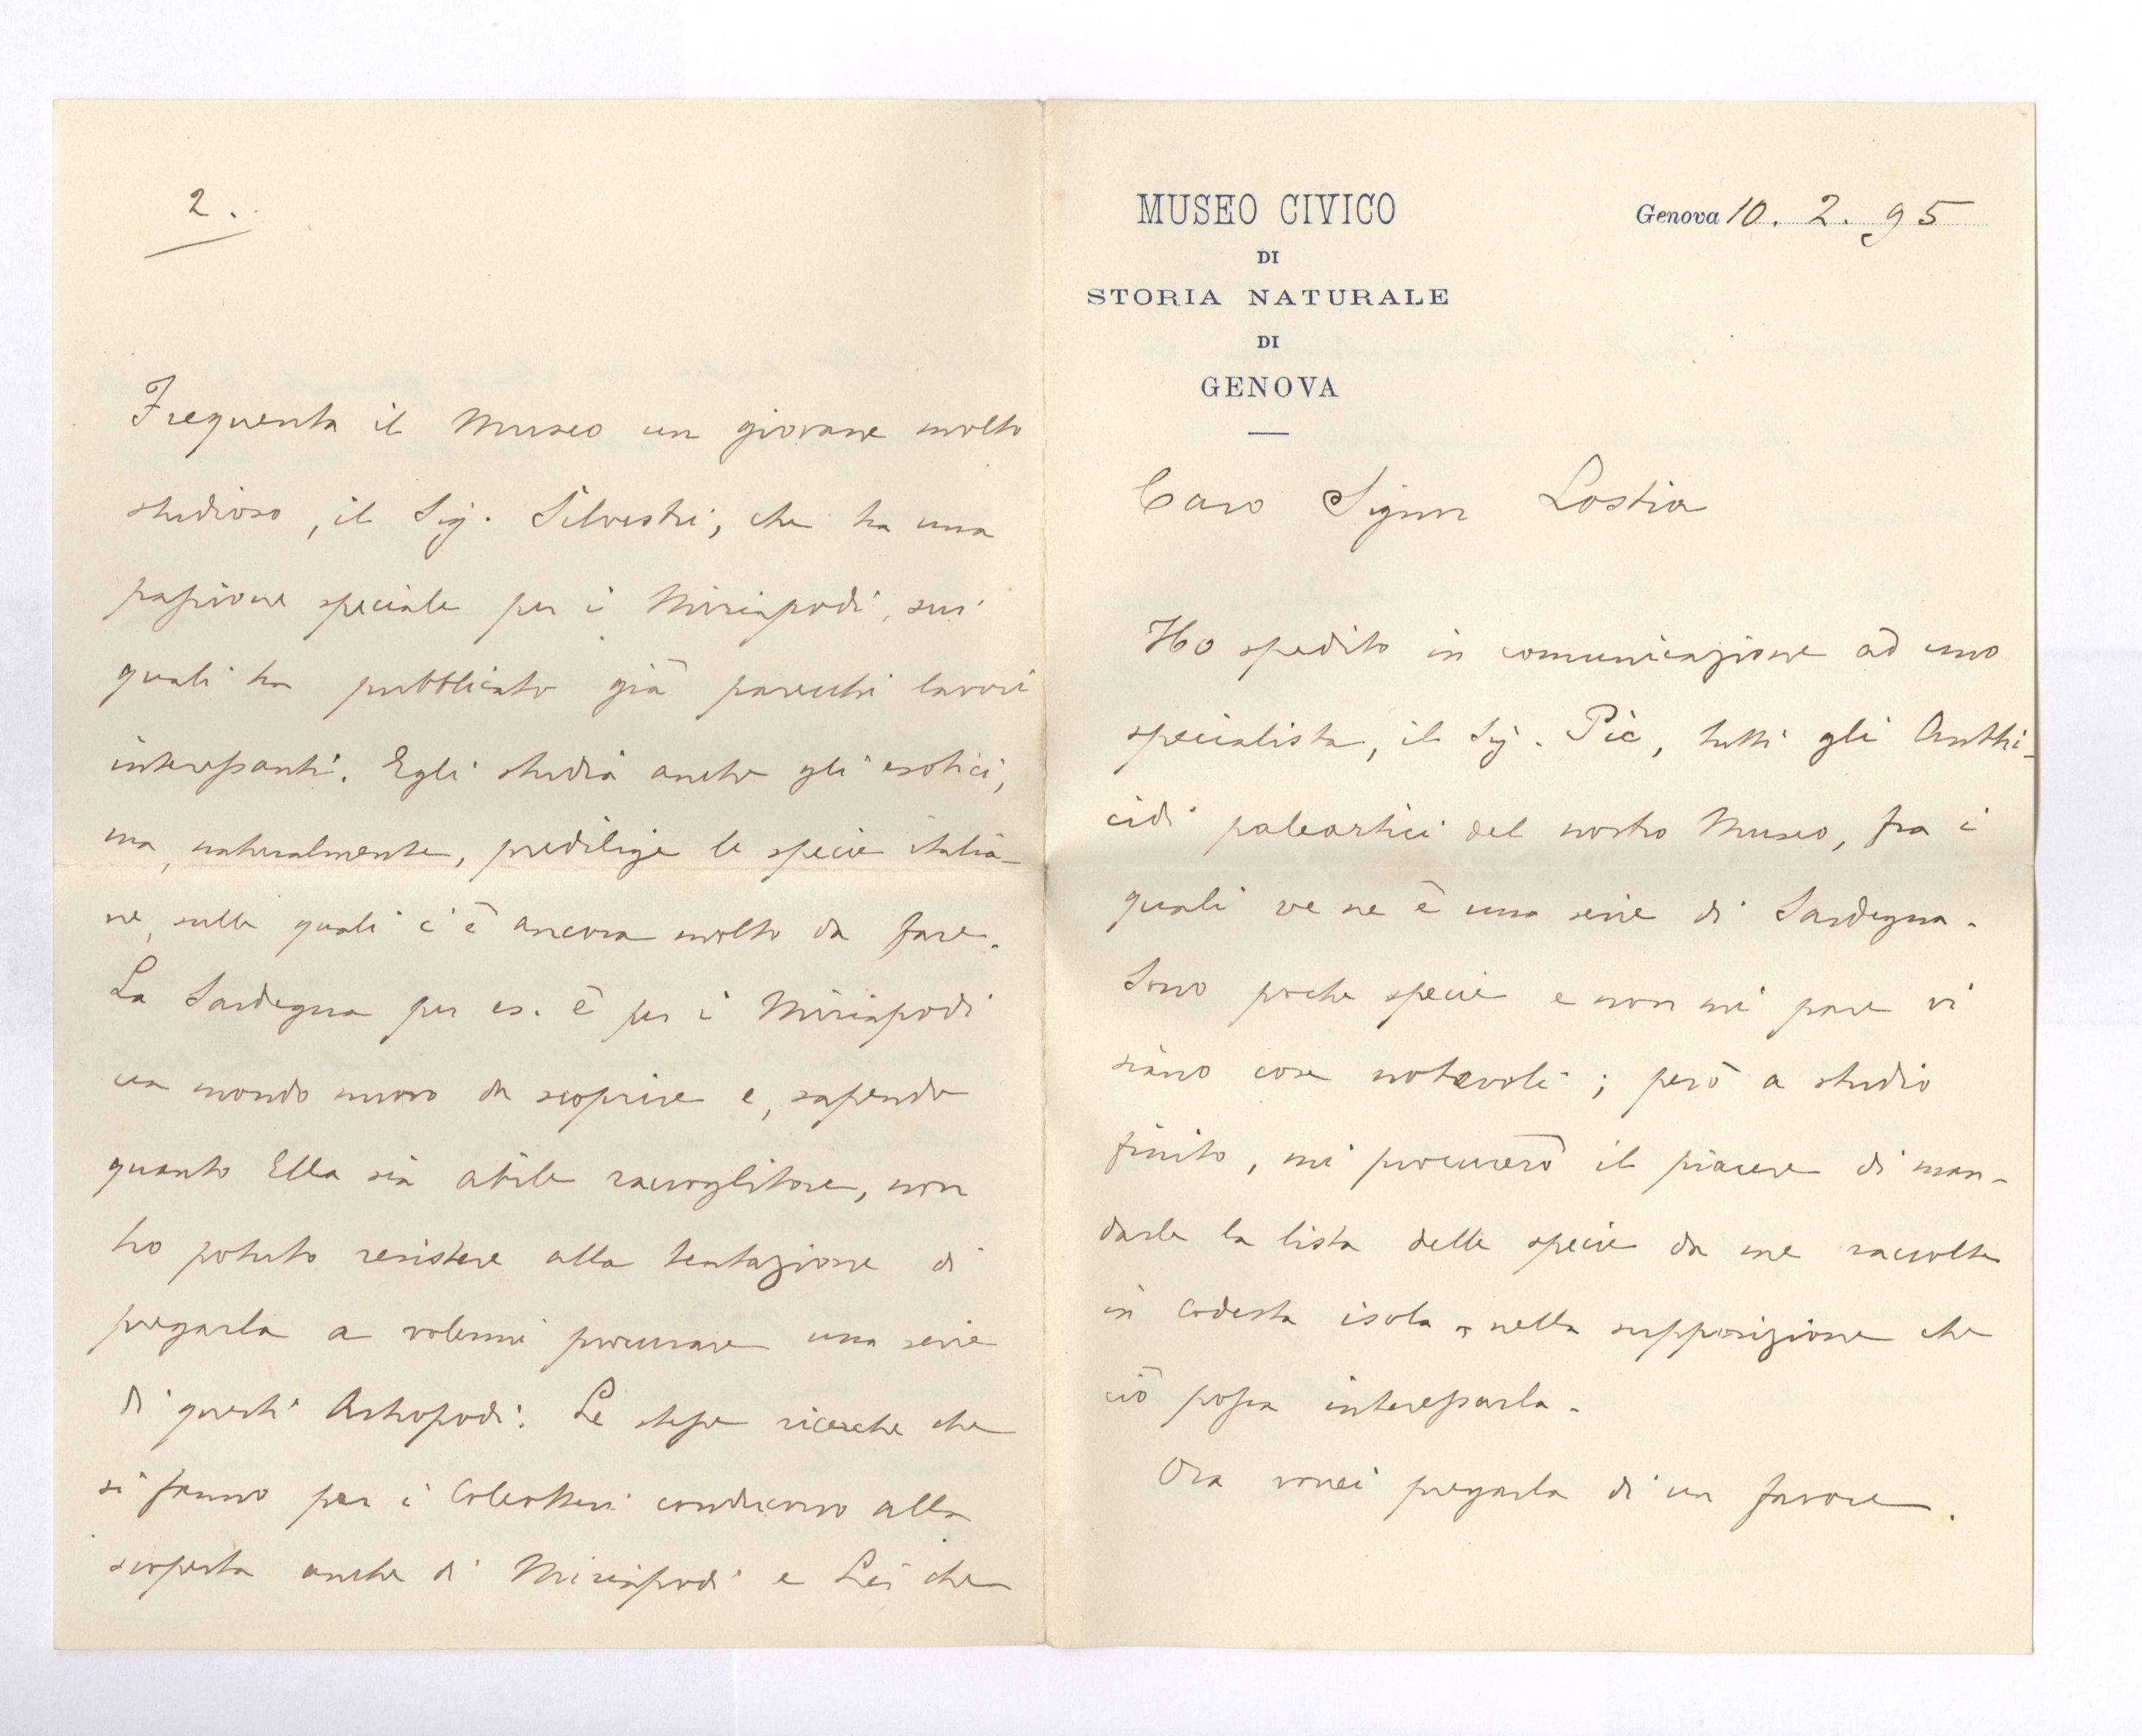 MUSEO CIVICO
DI
STORIA NATURALE
DI
GENOVA
Genova 10. 2. 95
Caro Signor Lostia
Ho spedito in comunicazione ad uno
specialista, il Sig. Pic, tutti gli Anthi-
cidi paleartici del nostro Museo, fra i
quali ve ne è una serie di Sardegna.
Sono poche specie e non mi pare vi
siano cose notevoli; però a studio
finito, mi procurerò il piacere di man-
darle la lista delle specie da me raccolte
in codesta isola, nella supposizione che
ciò possa interessarla.
Ora vorrei pregarla di un favore.
2.
Frequenta il Museo un giovane molto
studioso, il Sig. Silvestri, che ha una
passione speciale per i Miriapodi, sui
quali ha pubblicato già parecchi lavori
interessanti. Egli studia anche gli esotici,
ma, naturalmente, predilige le specie italia-
ne, sulle quali c'è ancora molto da fare.
La Sardegna per es. è per i Miriapodi
un mondo nuovo da scoprire e, sapendo
quanto Ella sia abile raccoglitore, non
ho potuto resistere alla tentazione di
pregarla a volermi procurare una serie
di questi Artropodi. Le stesse ricerche che
si fanno per i Coleotteri conducono alla
scoperta anche di Miriapodi e Lei che